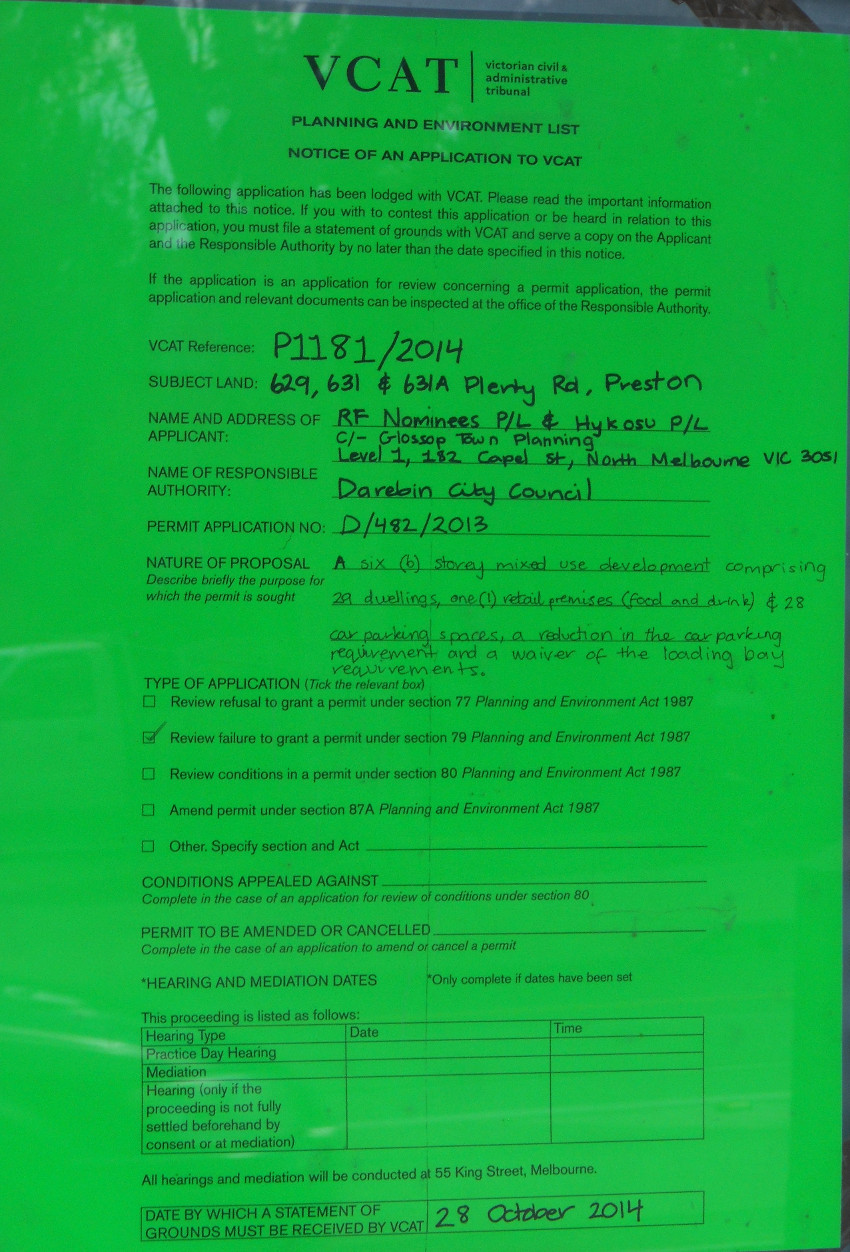 VCAT
victorian civil &
administrative
tribunal
PLANNING AND ENVIRONMENT LIST
NOTICE OF AN APPLICATION TO VCAT
The following application has been lodged with VCAT. Please read the important information
attached to this notice. If you with to contest this application or be heard in relation to this
application, you must file a statement of grounds with VCAT and serve a copy on the Applicant
and the Responsible Authority by no later than the date specified in this notice.
If the application is an application for review concerning a permit application, the permit
application and relevant documents can be inspected at the office of the Responsible Authority.
VCAT Reference: P1181/2014
SUBJECT LAND: 629, 631 & 631A Plenty Rd, Preston
NAME AND ADDRESS OF APPLICANT: RF Nominees P/L & Hykosu P/L
C/- Glossop Town Planning
Level 1, 182 Capel St, North Melbourne VIC 3051
NAME OF RESPONSIBLE
AUTHORITY: Darebin City Council
PERMIT APPLICATION NO: D/482/2013
NATURE OF PROPOSAL A six (6) storey mixed use development comprising
Describe briefly the purpose for
which the permit is sought 29 dwellings, one (1) retail premises (food and drink) & 28
car parking spaces, a reduction in the car parking
requirement and a waiver of the loading bay
requirements.
TYPE OF APPLICATION (Tick the relevant box)
☐ Review refusal to grant a permit under section 77 Planning and Environment Act 1987
☑ Review failure to grant a permit under section 79 Planning and Environment Act 1987
☐ Review conditions in a permit under section 80 Planning and Environment Act 1987
☐ Amend permit under section 87A Planning and Environment Act 1987
☐ Other. Specify section and Act
CONDITIONS APPEALED AGAINST
Complete in the case of an application for review of conditions under section 80
PERMIT TO BE AMENDED OR CANCELLED
Complete in the case of an application to amend or cancel a permit
*HEARING AND MEDIATION DATES *Only complete if dates have been set
This proceeding is listed as follows:
Hearing Type Date Time
Practice Day Hearing
Mediation
Hearing (only if the
proceeding is not fully
settled beforehand by
consent or at mediation)
All hearings and mediation will be conducted at 55 King Street, Melbourne.
DATE BY WHICH A STATEMENT OF
GROUNDS MUST BE RECEIVED BY VCAT 28 October 2014